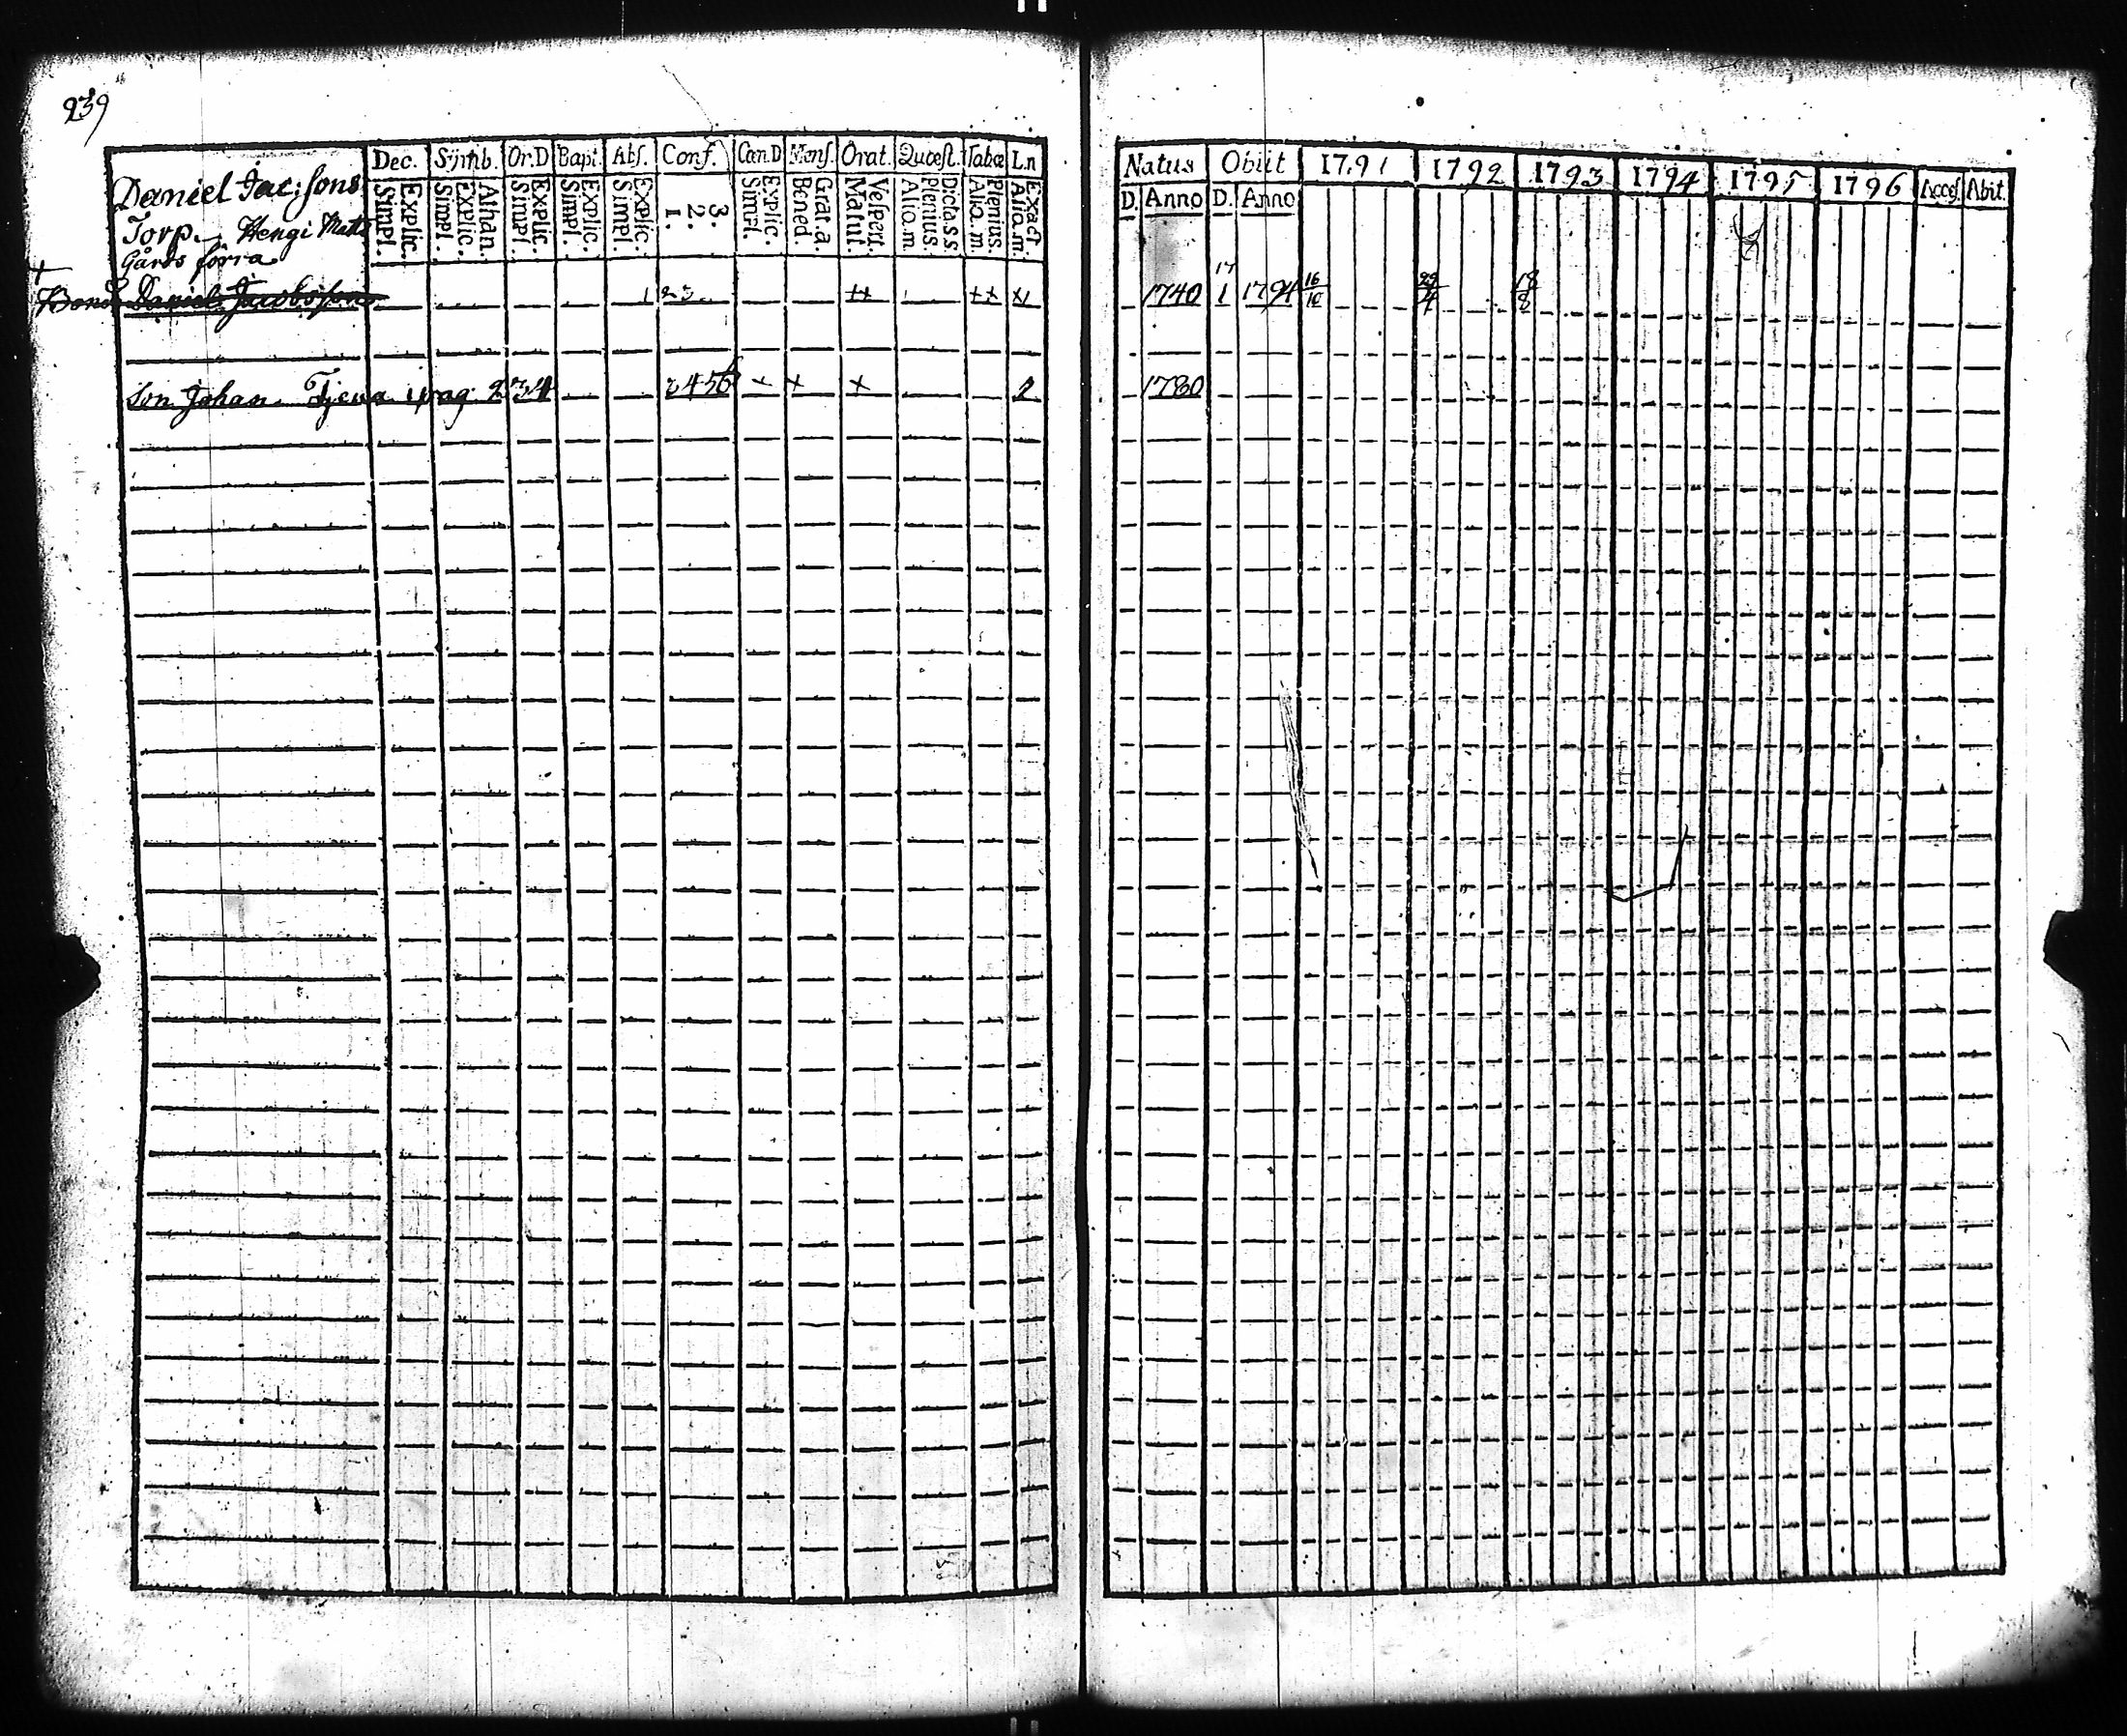 239
Dec. Symb. Or.D Bapt. Abs. Conf. Cœn.D Mens. Orat. Quæst. Tabœ L.n
Daniel Jac:sons
Torp. Hengi Matts
Gårds förra
Simpl. Explic. Simpl. Explic. Athan. Simpl. Explic. Simpl. Explic. Simpl. Explic. 1. 2. 3. Simpl. Explic. Bened. Grat.a. Matut. Vespert. Alio.m. Plenius. Dicta.s.s. Alio.m. Plenius. Alio.m. Exact
† Bond Daniel Jacobsson 1 2 3 ++ ++ x/
Son Johan Tjena pag. 234 2 4 5 6 + + + 2
Natus Obiit 1791 1792 1793 1794 1795 1796 Acces. Abit.
D. Anno D. Anno
1740 17/1 1794 16/10 29/4 18/8
1780